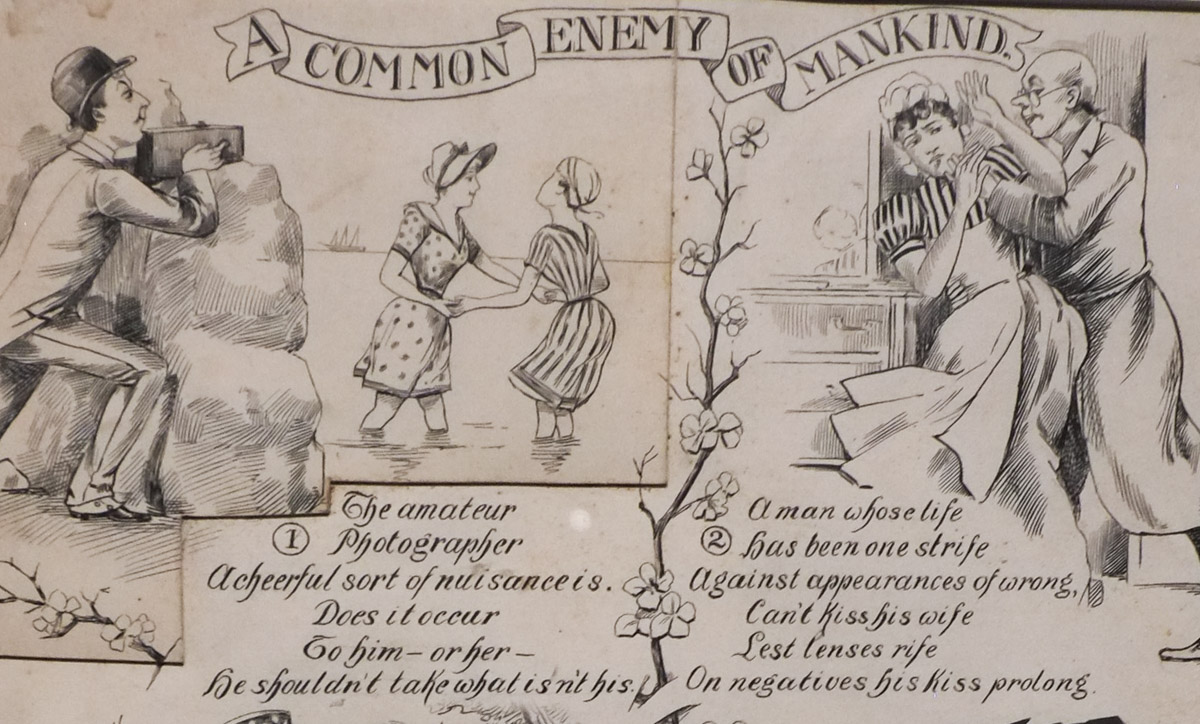 A COMMON ENEMY OF MANKIND.
The amateur
1 Photographer
A cheerful sort of nuisance is.
Does it occur
To him – or her –
He shouldn't take what isn't his.
A man whose life
2 has been one strife
Against appearances of wrong,
Can't Kiss his wife
Lest lenses rife
On negatives his Kiss prolong.